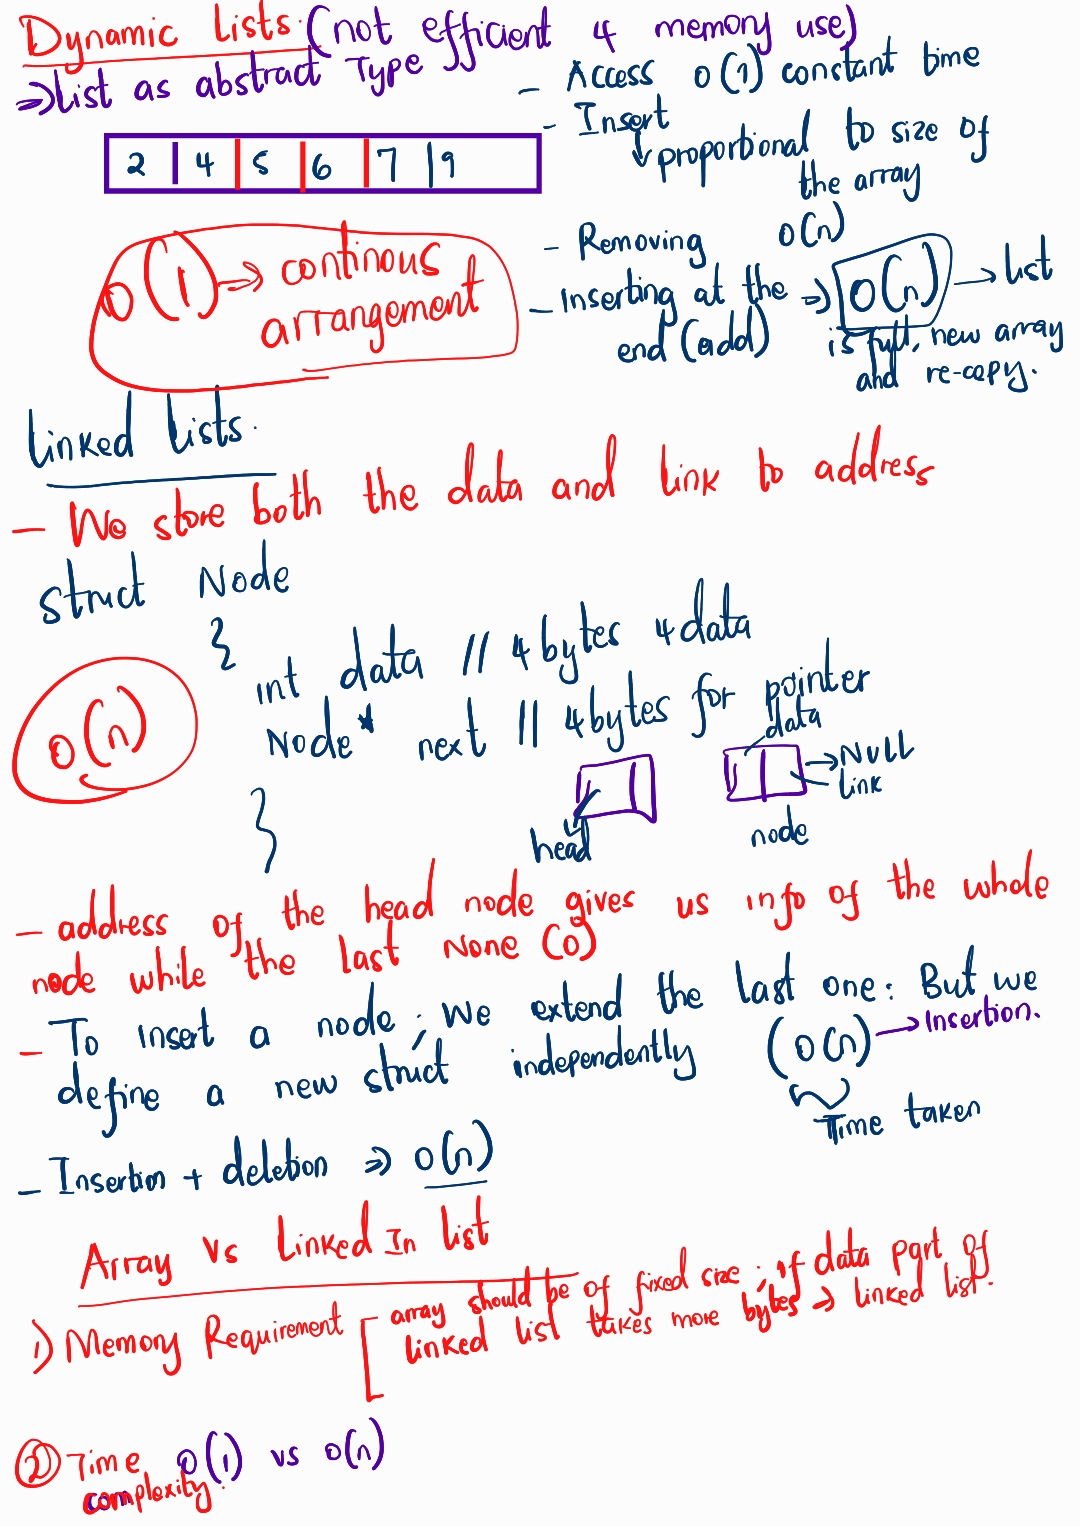 Dynamic Lists. (not efficient 4 memory use)
⇒ List as abstract Type
- Access O(1) constant time
- Insert
↳ proportional to size of
the array
2 | 4 | 5 | 6 | 7 | 9
- Removing O(n)
O(1) → continous
arrangement
- Inserting at the ⇒ O(n) → list
end (add)
is full, new array
and re-copy.
Linked Lists.
- We store both the data and link to address
struct Node
{
int data // 4 bytes 4 data
Node* next // 4 bytes for pointer
O(n)
data
→ NULL
link
head
node
}
- address of the head node gives us info of the whole
node while the last None (0)
- To insert a node, we extend the last one: But we
define a new struct independently (O(n)) → Insertion.
Time taken
- Insertion + deletion ⇒ O(n)
Array Vs Linked In list
1) Memory Requirement [ array should be of fixed size; if data part of
linked list takes more bytes → linked list.
② Time O(1) vs O(n)
complexity.